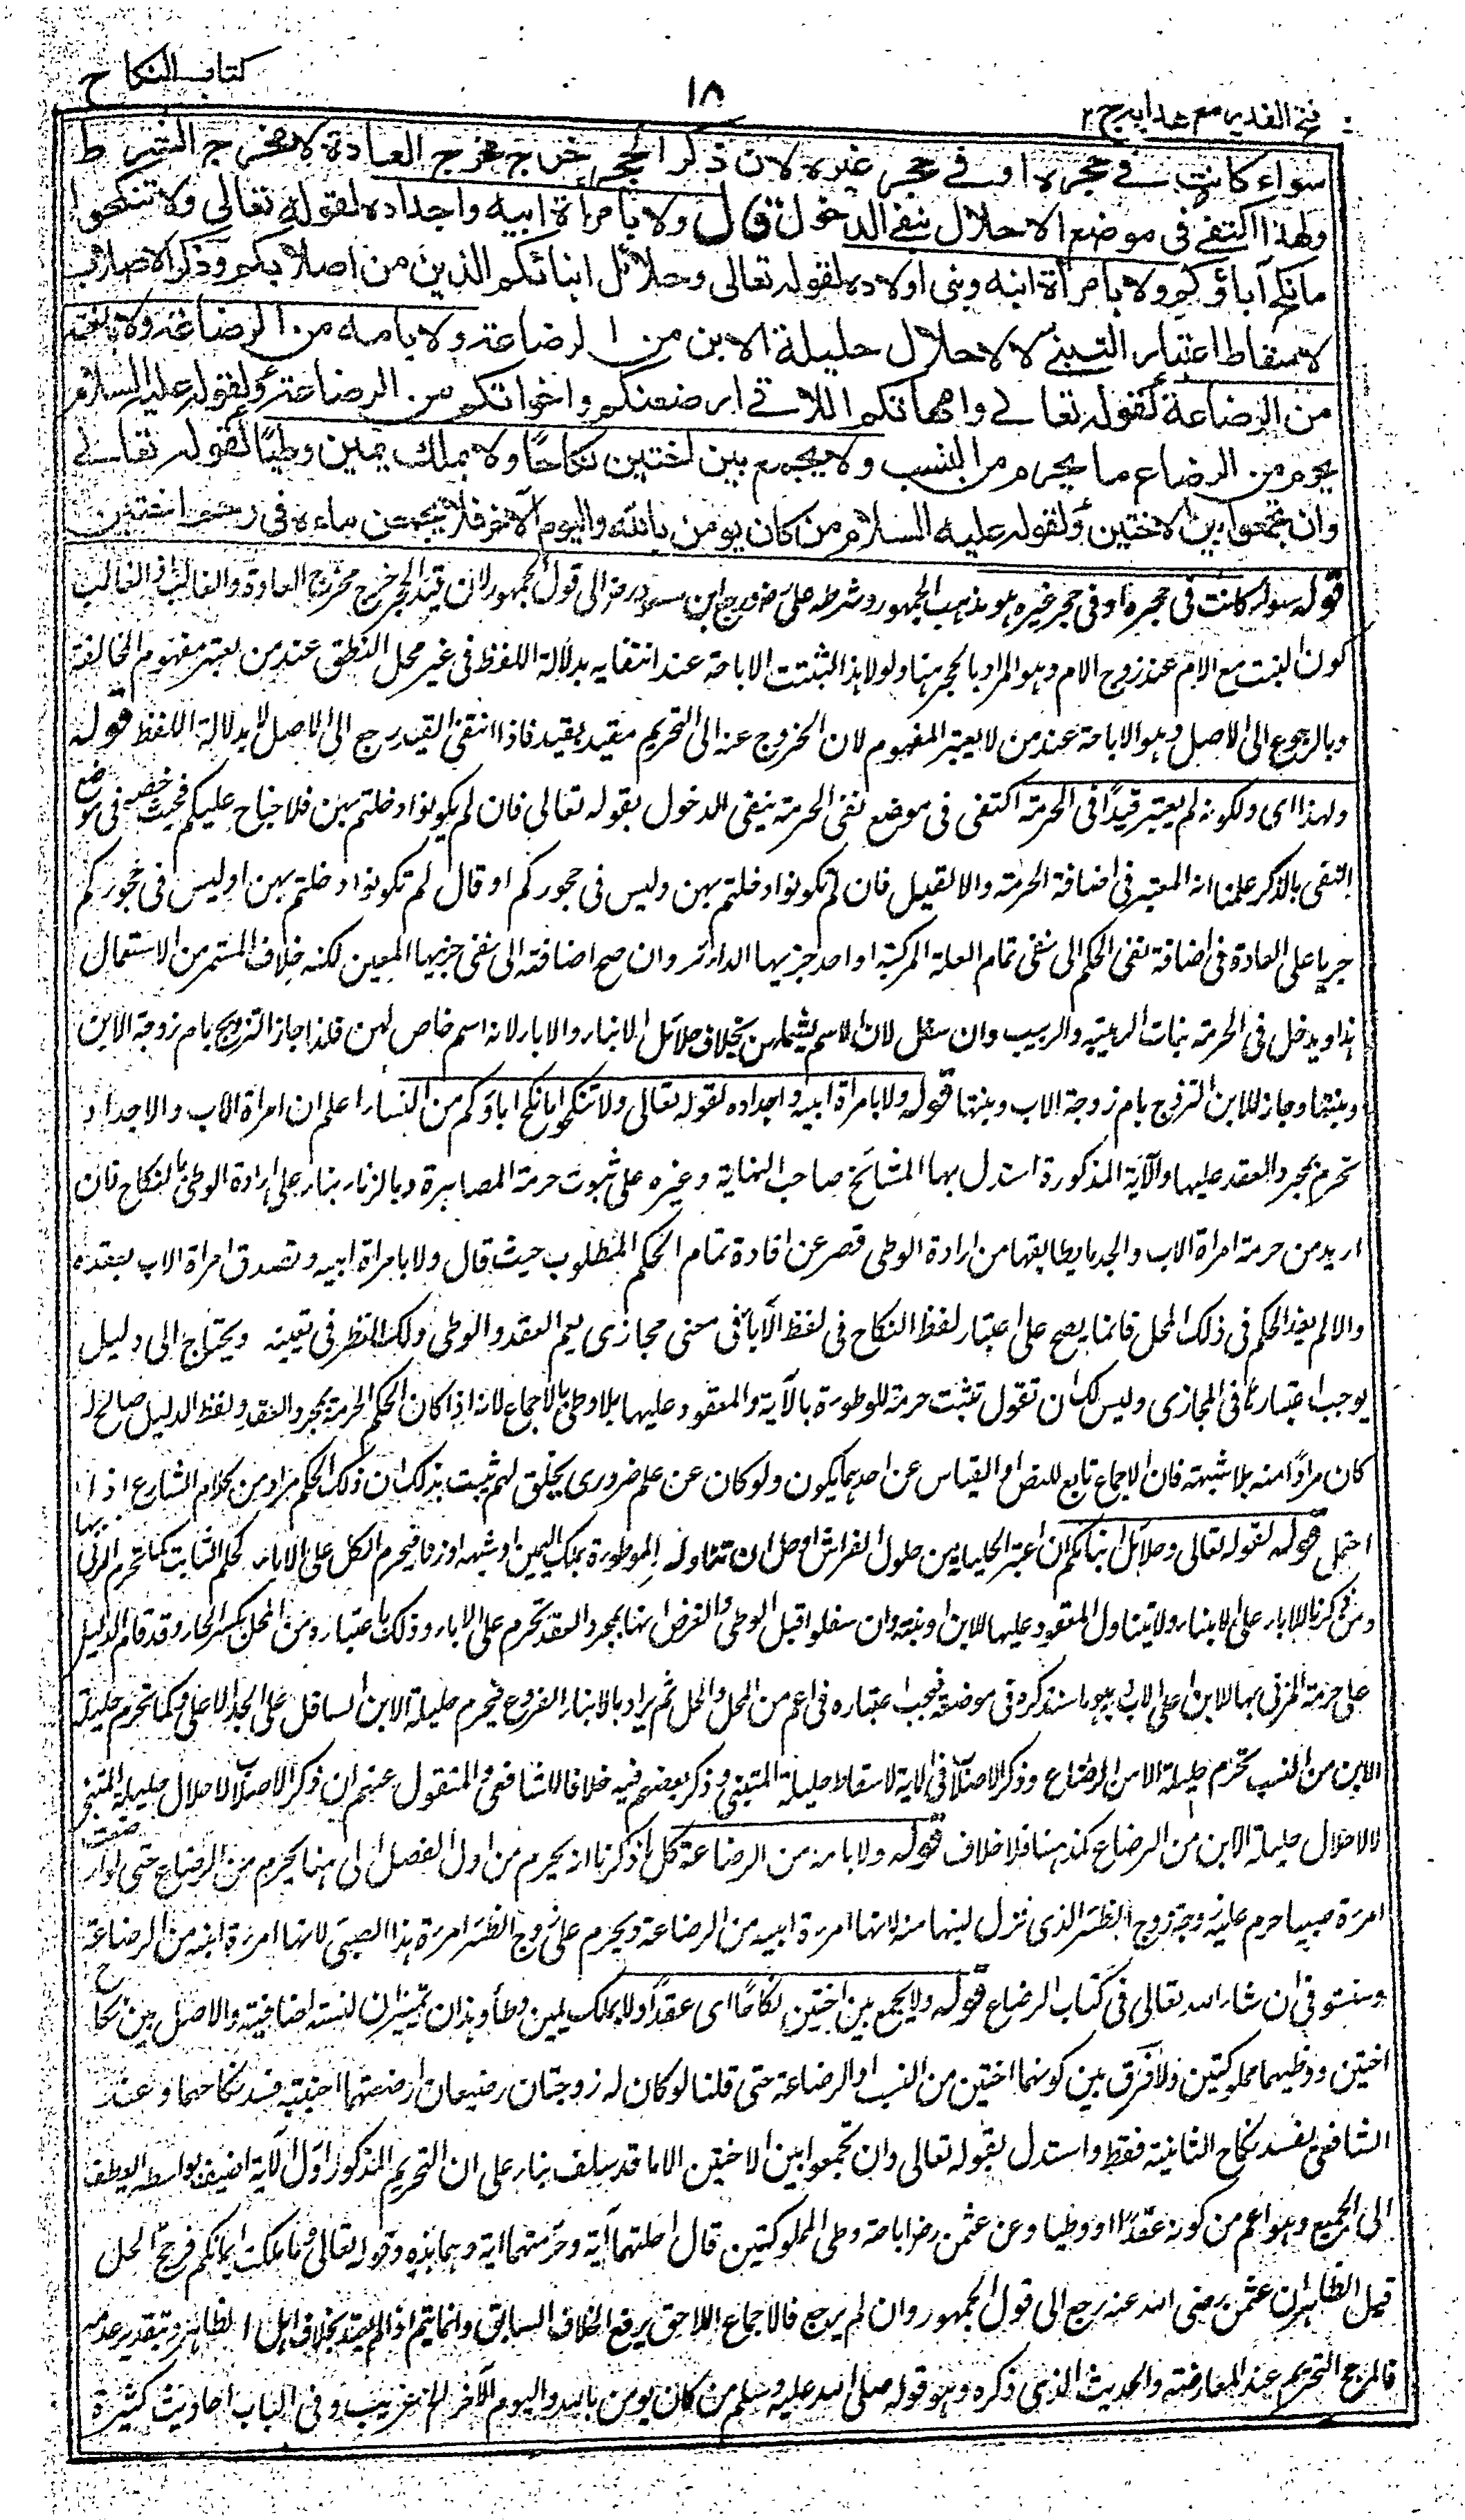 فتح القدير مع هدايه ج ٢
١٨
كتاب النكاح
سواء كانت في حجره او في حجر غيره لان ذكر الحجر خرج مخرج العادة لا مخرج الشرط
ولهذا اكتفى في موضع الاحلال بنفي الدخول قال ولا بامرأة ابيه واجداده لقوله تعالى ولا تنكحوا
ما نكح آباؤكم ولا بامرأة ابنه وبنى اولاده لقوله تعالى وحلائل ابنائكم الذين من اصلابكم وذكر الاصلاب
لاسقاط اعتبار التبني لا لاحلال حليلة الابن من الرضاعة ولا بامه من الرضاعة ولا باخته
من الرضاعة لقوله تعالى وامهاتكم اللاتي ارضعنكم واخواتكم من الرضاعة ولقوله عليه السلام
يحرم من الرضاع ما يحرم من النسب ولا يجمع بين اختين نكاحًا ولا بملك يمين وطيًا لقوله تعالى
وان تجمعوا بين الاختين ولقوله عليه السلام من كان يومن بالله واليوم الآخر فلا يجمعن ماءه في رحم اختين
قوله سواء كانت في حجره او في حجر غيره هو مذهب الجمهور وشرطه علي رض ورجع ابن مسعود رض الى قول الجمهور لان قيد الحجر خرج مخرج العادة والغالب اذ الغالب
كون البنت مع الام عند زوج الام وهو المراد بالحجر هنا ولولا هذا لثبتت الاباحة عند انتفايه بدلالة اللفظ في غير محل النطق عند من يعتبر مفهوم المخالفة
وبالرجوع الى الاصل وهو الاباحة عند من لا يعتبر المفهوم لان الخروج عنه الى التحريم مقيد بقيد فاذا انتفى القيد رجع الى الاصل لا بدلالة اللفظ قوله
ولهذا اى ولكونه لم يعتبر قيدًا في الحرمة اكتفى في موضع نفى الحرمة بنفى الدخول بقوله تعالى فان لم تكونوا دخلتم بهن فلا جناح عليكم فحيث خصه في موضع
النفى بالذكر علمنا انه المعتبر في اضافة الحرمة والا لقيل فان لم تكونوا دخلتم بهن وليس في حجوركم او قال لم تكونوا دخلتم بهن او ليس في حجوركم
جريا على العادة في اضافة نفى الحكم الى نفى تمام العلة المركبة او احد جزئيها الدائر وان صح اضافته الى نفى جزئها المعين لكنه خلاف المستمر من الاستعمال
هذا ويدخل في الحرمة بنات الربيبة والربيب وان سفلن لان الاسم يشملهن بخلاف حلائل الابناء والاباء لانه اسم خاص لهن فلذا جاز التزويج بام زوجة الابن
وبنتها وجاز للابن التزوج بام زوجة الاب وبنتها قوله ولا بامرأة ابيه واجداده لقوله تعالى ولا تنكحوا ما نكح اباؤكم من النساء اعلم ان امرأة الاب والاجداد
تحرم بمجرد العقد عليها والآية المذكورة استدل بها المشائخ صاحب النهاية وغيره على ثبوت حرمة المصاهرة بالزنا بناء على ارادة الوطى بالنكاح فان
اريد من حرمة امرأة الاب والجد ما يطابقها من ارادة الوطى قصر عن افادة تمام الحكم المطلوب حيث قال ولا بامرأة ابيه وتصدق امرأة الاب بعقده
والا لم يفد الحكم في ذلك المحل فانما يصح على اعتبار لفظ النكاح في لفظ الآباء في معنى مجازى يعم العقد والوطى ولك النظر في تعيينه ويحتاج الى دليل
يوجب اعتباره في المجازى وليس لك ان تقول تثبت حرمة الموطورة بالآية والمعقود عليها بلا وطى بالاجماع لانه اذا كان الحكم الحرمة بمجرد العقد ولفظ الدليل صالح له
كان مرادًا منه بلا شبهة فان الاجماع تابع للنص او القياس عن احدهما يكون ولو كان عن علم ضرورى يخلق لهم ثبت بذلك ان ذلك الحكم مراد من كلام الشارع اذا
احتمله قوله لقوله تعالى وحلائل ابنائكم ان اعتبر الحليلة من حلول الفراش او حل الازار تتناول الموطورة بملك اليمين او شبهه او زنا فيحرم الكل على الاباء كحكم الثابت كما تحرم المزنى بها
ومن ذكرنا للاباء على الابناء ولا يتناول المعقود عليها للابن او بنيه وان سفلوا قبل الوطى والفرض انها بمجرد العقد تحرم على الاباء وذلك باعتباره من الحل بكسر الحاء وقد قام الدليل
على حرمة المزنى بها للابن على الاب وهو ما سنذكره في موضعه فيجب اعتباره في اعم من الحل والحل ثم يراد بالابناء الفروع فيحرم حليلة الابن السافل على الجد الاعلى وكما تحرم حليلة
الابن من النسب تحرم حليلة الابن من الرضاع وذكر الاصلاب في الاية لاسقاط حليلة المتبنى وذكر بعضهم فيه خلافا للشافعي والمنقول عنهم ان ذكر الاصلاب لاحلال حليلة المتبنى
لا لاحلال حليلة الابن من الرضاع كمذهبنا فلا خلاف قوله ولا بامه من الرضاعة كل ما ذكرنا انه يحرم من اول الفصل الى هنا يحرم من الرضاع حتى لو ارضعت
امرءة صبيا حرم عليه زوجة زوج الظئر الذى نزل لبنها منه لانها امرءة ابيه من الرضاعة ويحرم على زوج الظئر امرءة هذا الصبي لانها امرءة ابنه من الرضاعة
وسنستوفي ان شاء الله تعالى في كتاب الرضاع قوله ولا يجمع بين اختين نكاحًا اى عقدًا ولا بملك يمين وطأ وهذان تمييزان لنسبة اضافية والاصل بين نكاح
اختين ووطئهما مملوكتين ولا فرق بين كونهما اختين من النسب او الرضاعة حتى قلنا لو كان له زوجتان رضيعتان ارضعتهما اجنبية فسد نكاحهما وعند
الشافعي يفسد نكاح الثانية فقط واستدل بقوله تعالى وان تجمعوا بين الاختين الا ما قد سلف بناء على ان التحريم المذكور اول الآية اضيف بواسطة العطف
الى الجمع وهو اعم من كونه عقدًا او وطيا وعن عثمن رض اباحة وطى المملوكتين قال احلتهما آية وحرمتهما آية وهما هذه وقوله تعالى وما ملكت ايمانكم فرجح الحل
قيل الظاهر ان عثمن رضى الله عنه رجع الى قول الجمهور وان لم يرجع فالاجماع اللاحق يرفع الخلاف السابق وانما يتم اذا لم يعتد بخلاف اهل الظاهر وبتقدير عدمه
فالمرجح التحريم عند المعارضة والحديث الذى ذكره وهو قوله صلى الله عليه وسلم من كان يومن بالله واليوم الآخر الخ غريب وفي الباب احاديث كثيرة